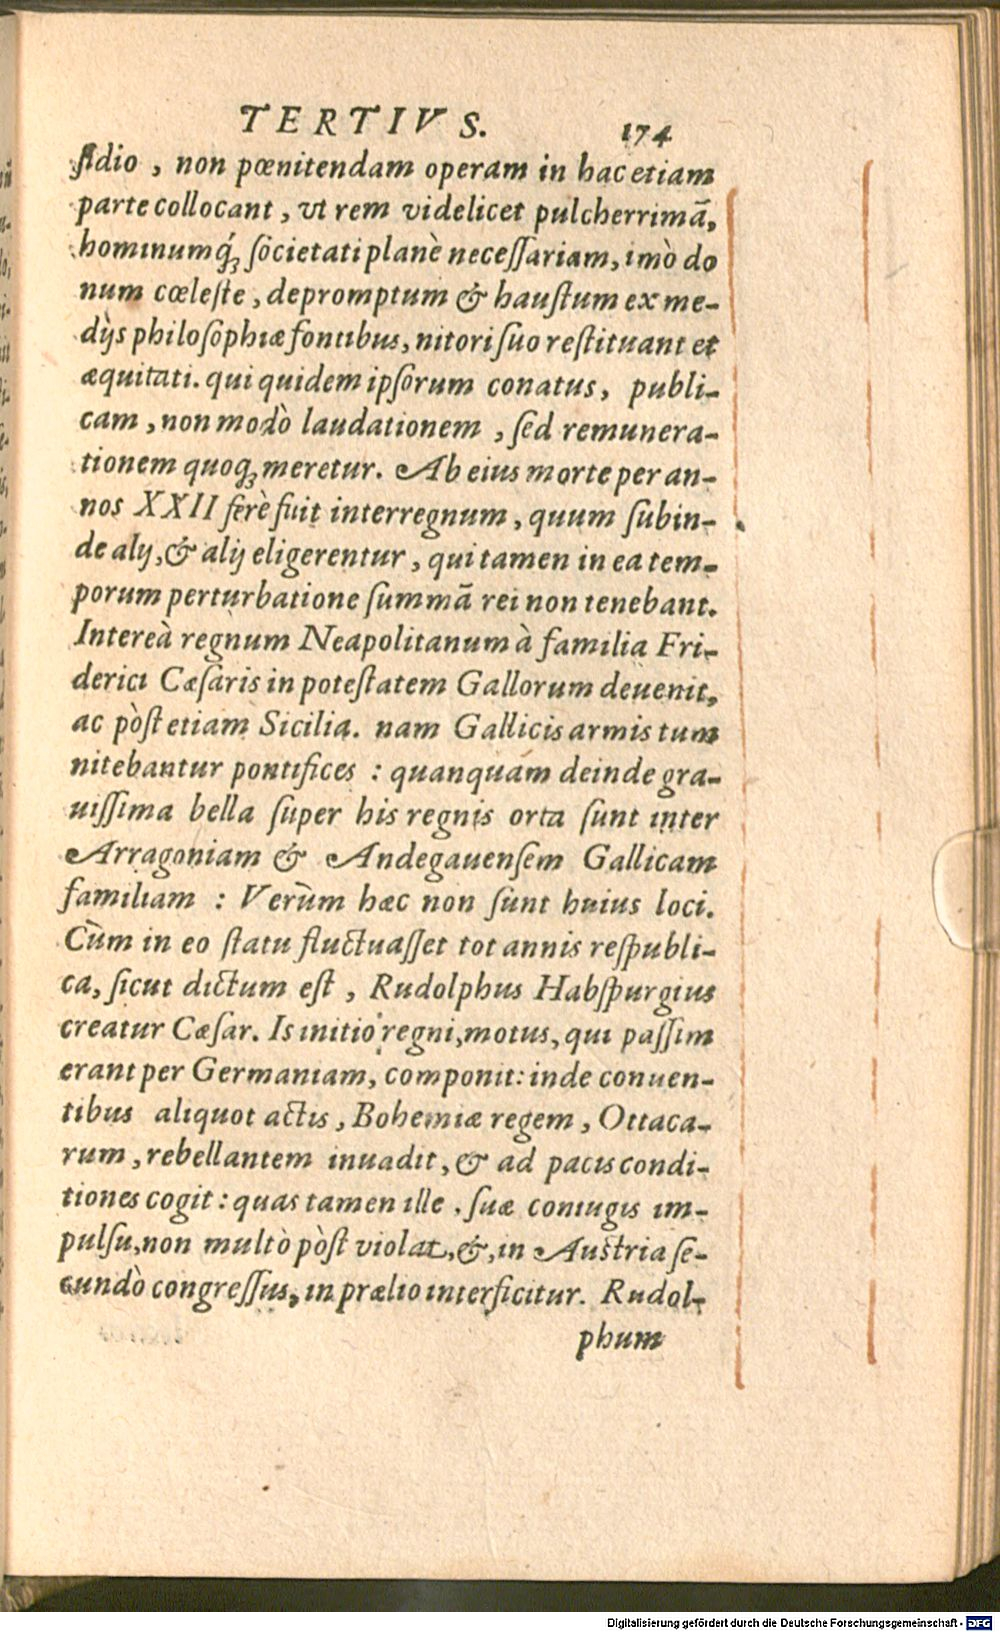 TERTIVS. 174
ſidio, non pœnitendam operam in hac etiam
parte collocant, vt rem videlicet pulcherrimã,
hominumq́ꝫ ſocietati planè neceſſariam, imò do
num cœleſte, depromptum & hauſtum ex me-
dijs philoſophiæ fontibus, nitori ſuo reſtituant et
æquitati. qui quidem ipſorum conatus, publi-
cam, non modò laudationem, ſed remunera-
tionem quoqꝫ meretur. Ab eius morte per an-
nos XXII ferè fuit interregnum, quum ſubin-
de alij, & alij eligerentur, qui tamen in ea tem-
porum perturbatione ſummã rei non tenebant.
Intereà regnum Neapolitanum à familia Fri-
derici Cæſaris in poteſtatem Gallorum deuenit,
ac pòſt etiam Sicilia. nam Gallicis armis tum
nitebantur pontifices : quanquám deinde gra-
uiſſima bella ſuper his regnis orta ſunt inter
Arragoniam & Andegauenſem Gallicam
familiam : Verùm hæc non ſunt huius loci.
Cùm in eo ſtatu fluctuaſſet tot annis reſpubli-
ca, ſicut dictum eſt, Rudolphus Habſpurgius
creatur Cæſar. Is initio regni, motus, qui paſſim
erant per Germaniam, componit: inde conuen-
tibus aliquot actis, Bohemiæ regem, Ottaca-
rum, rebellantem inuadit, & ad pacis condi-
tiones cogit : quas tamen ille, ſuæ coniugis im-
pulſu, non multò pòſt violat, &, in Auſtria ſe-
cundò congreſſus, in prælio interficitur. Rudol-
phum
Digitalisierung gefördert durch die Deutsche Forschungsgemeinschaft - DFG